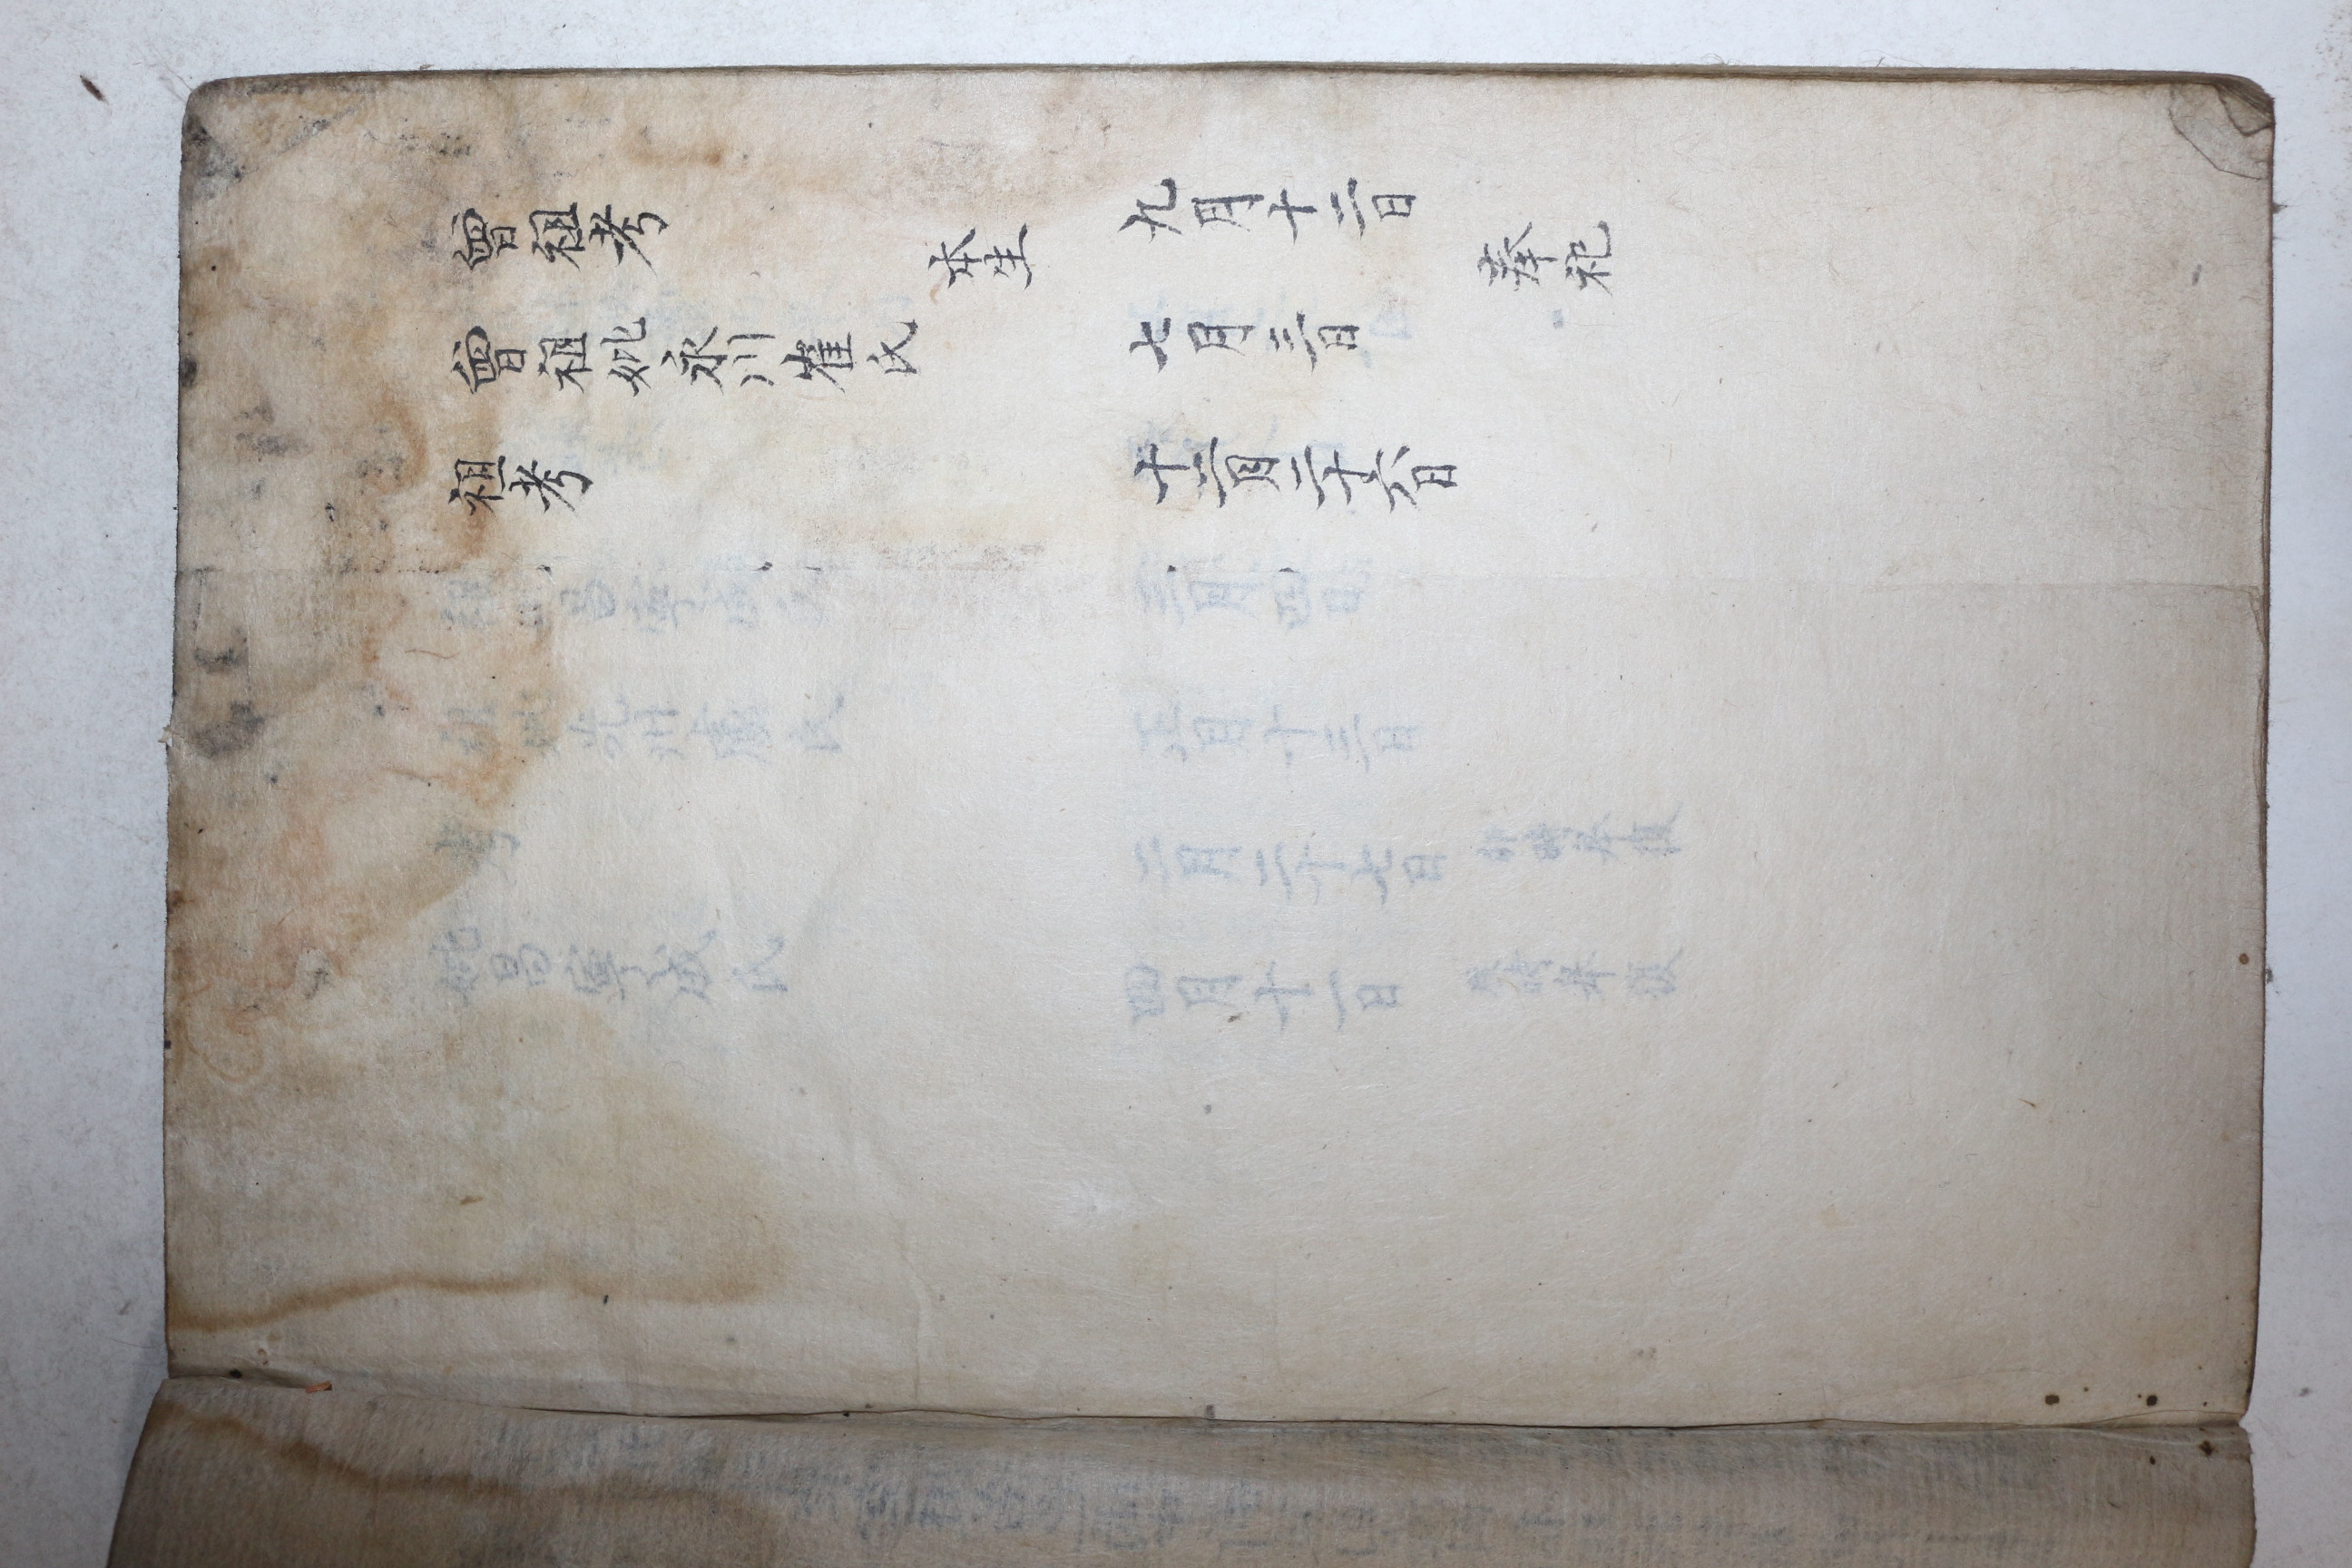 曾祖考 九月十二日
本生 奉祀
曾祖妣永川崔氏 七月三日
祖考 十二月二十六日
祖妣昌寧 三月四日
祖妣光州盧氏 正月十三日
考 二月二十七日 卯時皐復
妣昌寧成氏 四月十一日 時皐復